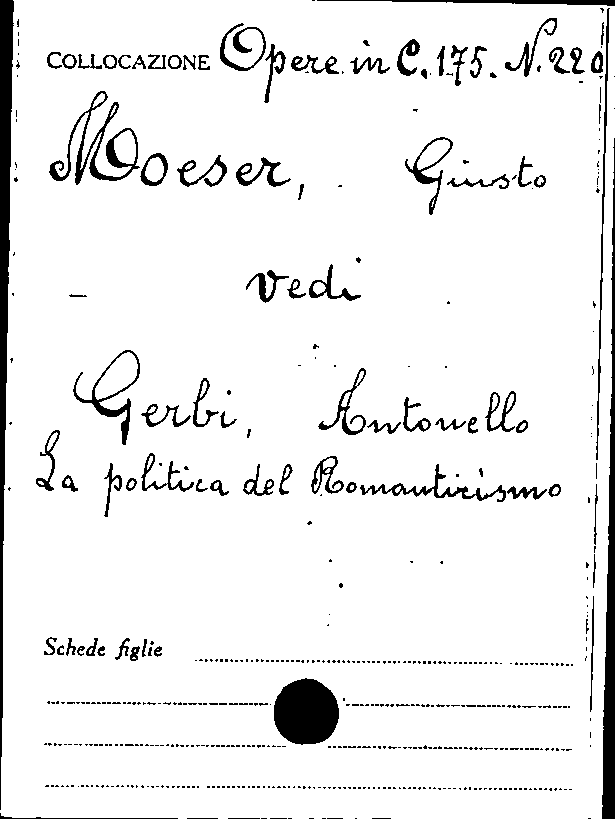 COLLOCAZIONE Opere in C. 175. N. 220
Moeser, Giusto
vedi
Gerbi, Antonello
La politica del Romanticismo
Schede figlie